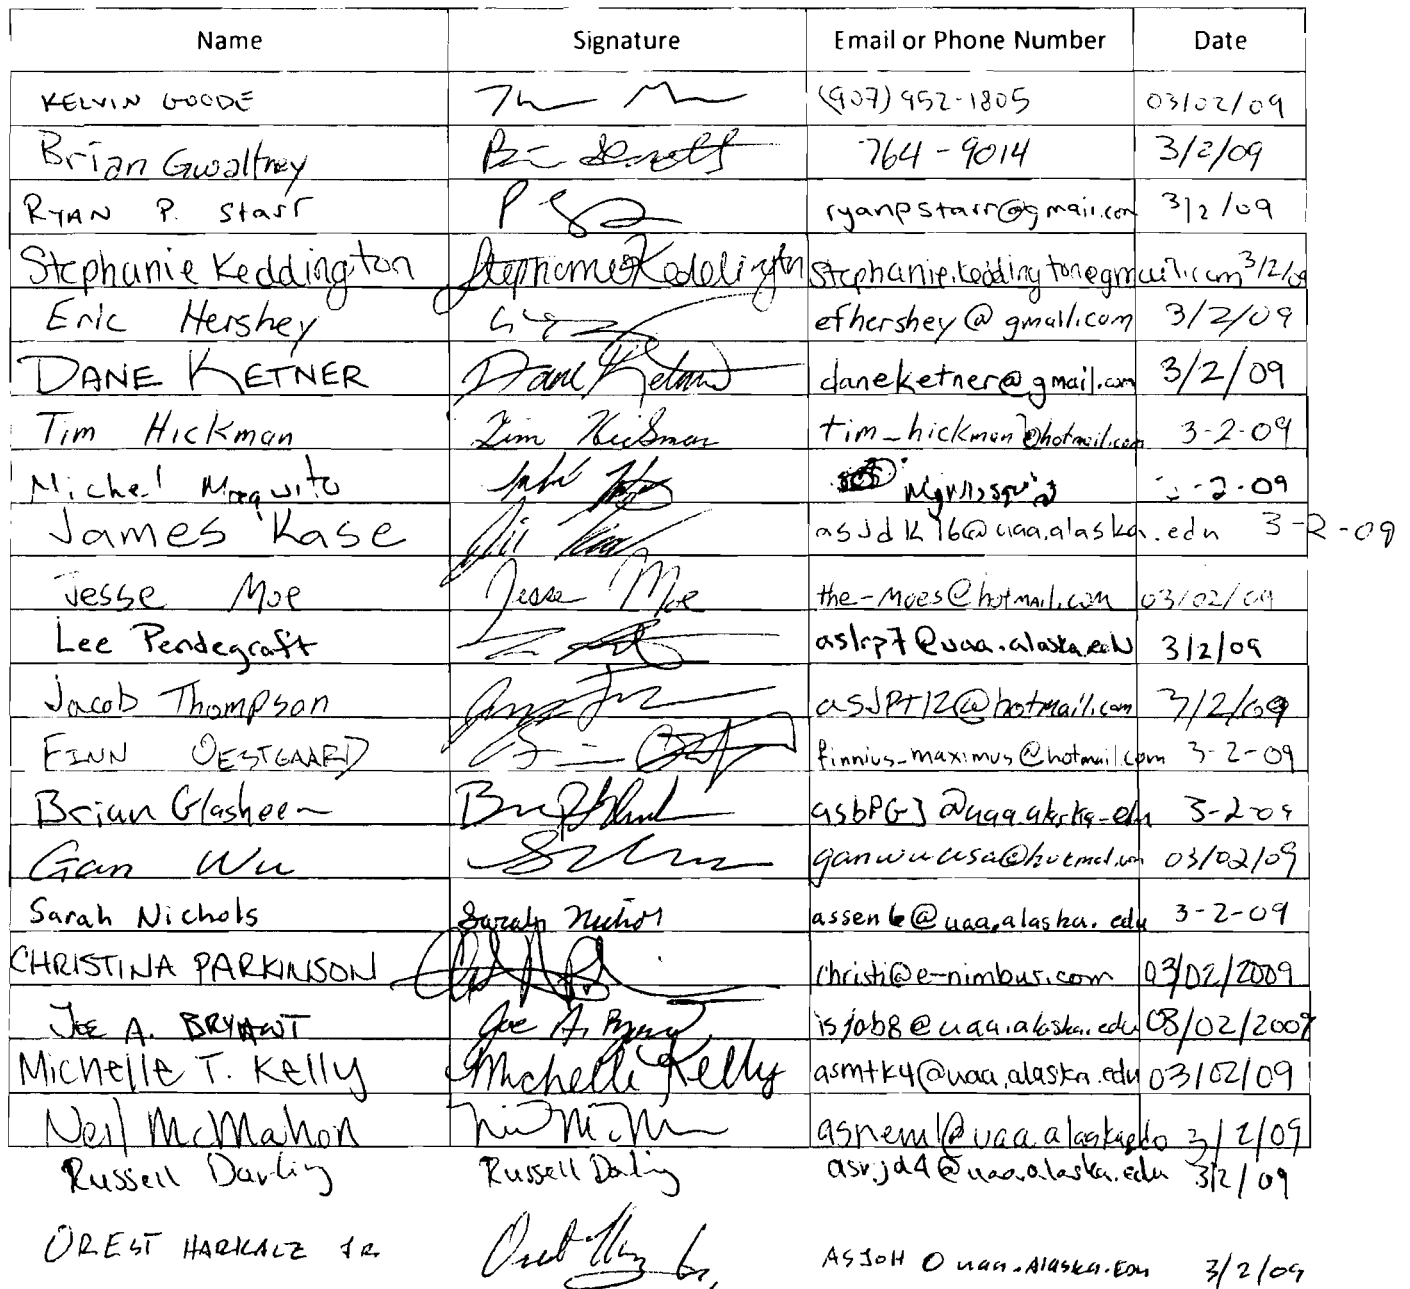 Name Signature Email or Phone Number Date
KELVIN GOODE (907) 952-1805 03/02/09
Brian Gwaltney 764-9014 3/2/09
RYAN P. Starr ryanpstarr@gmail.com 3/2/09
Stephanie Keddington Stephanie Keddington stephanie.keddington@gmail.com 3/2/09
Eric Hershey efhershey@gmail.com 3/2/09
DANE KETNER Dane Ketner daneketner@gmail.com 3/2/09
Tim Hickman Tim Hickman tim_hickman@hotmail.com 3-2-09
Michel -2-09
James Kase asjdk16@uaa.alaska.edu 3-2-09
Jesse Moe Jesse Moe the-moes@hotmail.com 03/02/09
Lee Pendegraft aslrp7@uaa.alaska.edu 3/2/09
Jacob Thompson asJPT12@hotmail.com 3/2/09
FINN OESTGAARD finnius_maximus@hotmail.com 3-2-09
Brian Glasheen asbPG3@uaa.alaska.edu 3-2-09
Gan Wu ganwuusa@hotmail.com 03/02/09
Sarah Nichols Sarah Nichols assen6@uaa.alaska.edu 3-2-09
CHRISTINA PARKINSON christi@e-nimbus.com 03/02/2009
JOE A. BRYANT Joe A. Bryant isjab8@uaa.alaska.edu 03/02/2009
Michelle T. Kelly Michelle Kelly asmtk4@uaa.alaska.edu 03/02/09
Neil McMahon asnem1@uaa.alaska.edu 3/2/09
Russell Darling Russell Darling asrjd4@uaa.alaska.edu 3/2/09
OREST HARKALZ JR. ASJOH@uaa.Alaska.Edu 3/2/09